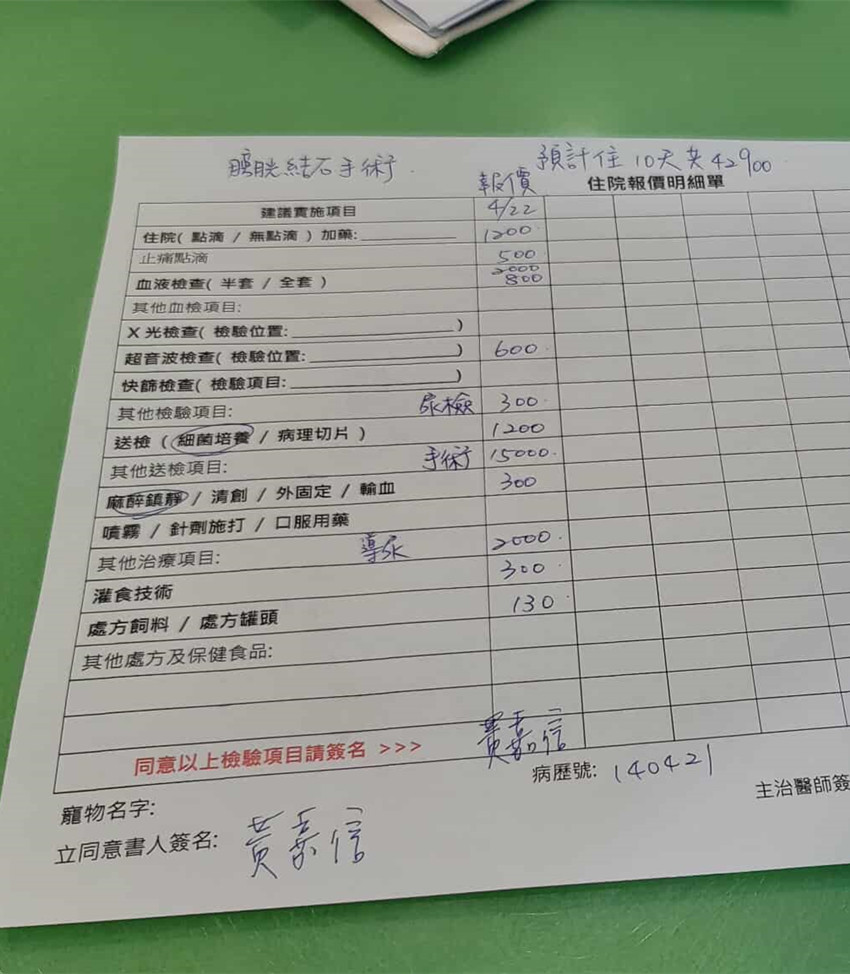 膀胱結石手術.
預計住 10天共 42900
報價
住院報價明細單
建議實施項目 4/22
住院( 點滴 / 無點滴 ) 加藥: 1200
止痛點滴 500
血液檢查( 半套 / 全套 ) 2000 800
其他血檢項目:
X 光檢查( 檢驗位置: )
超音波檢查( 檢驗位置: ) 600
快篩檢查( 檢驗項目: )
其他檢驗項目: 尿檢 300
送檢 ( 細菌培養 / 病理切片 ) 1200
其他送檢項目: 手術 15000
麻醉鎮靜 / 清創 / 外固定 / 輸血 300
噴霧 / 針劑施打 / 口服用藥
其他治療項目: 導尿 2000
灌食技術 300
處方飼料 / 處方罐頭 130
其他處方及保健食品:
同意以上檢驗項目請簽名 >>> 黃嘉信
病歷號: 140421
寵物名字:
主治醫師簽
立同意書人簽名: 黃嘉信